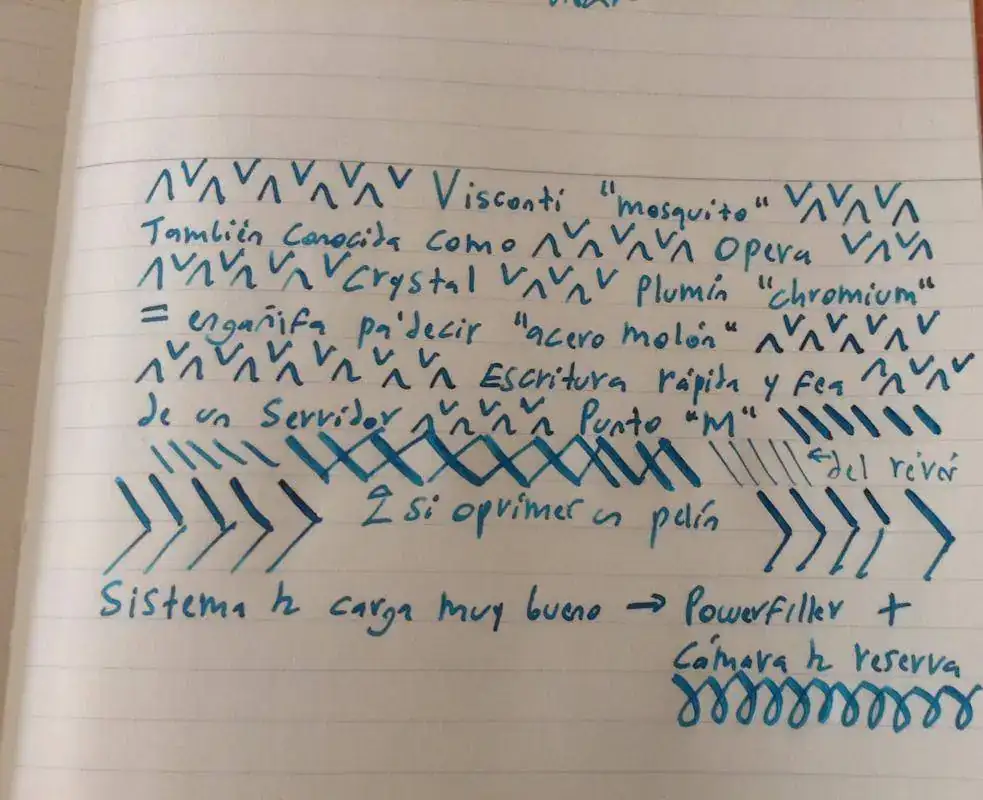 Visconti "mosquito"
También Conocida como Opera
Crystal Plumín "chromium"
= engañifa pa'decir "acero molón"
Escritura rápida y fea
de un Servidor Punto "M"
←del revér
si oprimer un pelín
Sistema de carga muy bueno → Powerfiller +
Cámara de reserva